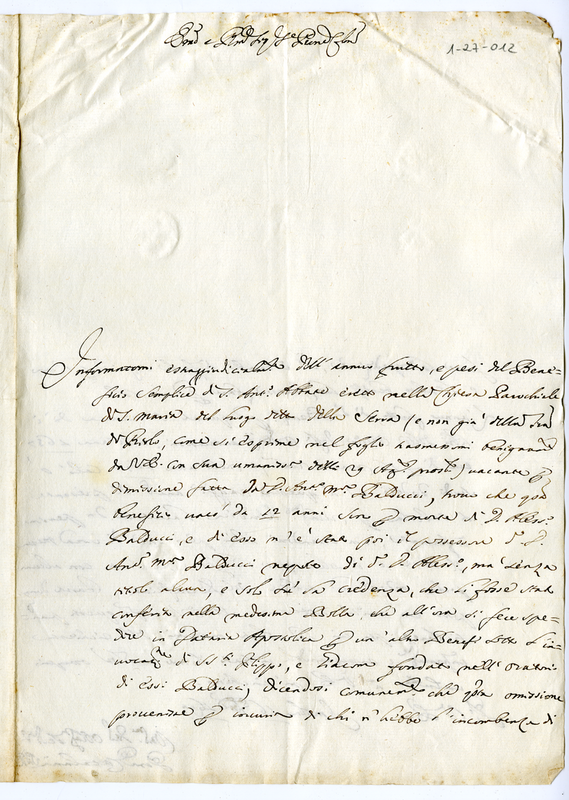 1-27-012
Informatomi estragiudicialmte dell'annuo frutto, e pesi del Bene=
ficio semplice di S. Antº Abbate eretto nella Chiesa Parochiale
di S. Maria del luogo detto della Serra (e non già della
di Riolo, come si esprime nel foglio trasmessomi
da V.E. con sua umaniss. delli 29 ) vacante p
dimissione fatta da D. Antº Mª Balducci, trovo che qto
beneficio vacò da 12 anni sono p morte di D. Aless.
Balducci, e di esso n'è stato poi il possessore dº D.
Antº Mª Balducci nepote di dº D. Aless.º, ma senza
titolo alcuno, e solo su la credenza, che li fosse stato
conferito nella medesima Bolla, che all'ora si fece spe=
dire in Dataria Apostolica p un'altro Benefº sotto l'in=
vocaz.ne di SS.ti Filippo, e Giacomo fondato nell'Oratorio
di essi Balducci; dicendosi comunemte che qta omissione
provenisse p incuria di chi n'hebbe l'incombenza di